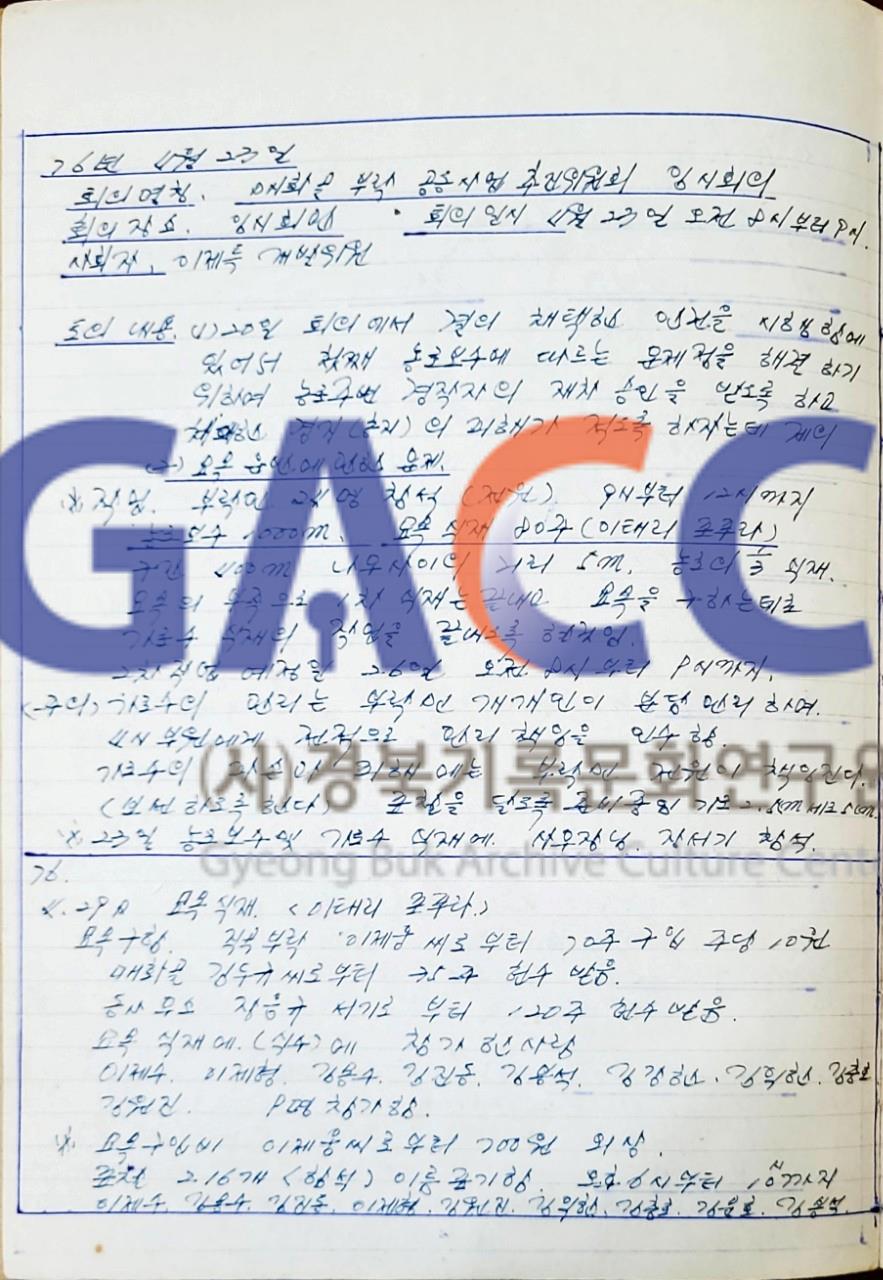 76년 4월 23일
회의명칭. 매화골 부락 공동사업 추진위원회 임시회의
회의장소. 임시회안 회의일시 4월 23일 오전 8시부터 9시.
사회자. 이제득 개발위원
토의 내용. (1) 20일 회의에서 결의 채택한 안건을 시행함에
있어서 첫째 농로보수에 따르는 문제점을 해결하기
위하여 농로주변 경작자의 재차 승인을 받도록 하고
경지 의 피해가 적도록 하자는데 제의
(2) 묘목 운반에 관한 문제.
※ 작업. 부락민 참석 (전원). 9시부터 12시까지
농로보수 1000m. 묘목 식재 80주 (이태리 포푸라)
구간 400m 나무사이의 거리 5m. 농로의 식재.
묘목의 부족으로 1차 식재는 끝내고 묘목을 구하는데로
가로수 식재의 작업을 끝내도록 현작임.
2차작업 예정일 26일 오전 8시부터 9시까지.
(주의) 가로수의 관리는 부락민 개개인이 분담 관리하며.
4H 부원에게 전적으로 관리 책임을 인수함.
가로수의 파손이나 피해에는 부락민 전원이 책임진다.
(보선하도록 한다) 표찰을 달도록 준비중임 가로 2.5cm 세로 5cm.
※ 23일 농로보수 및 가로수 식재에. 장서기 참석.
76.
4. 29日 묘목식재. (이태리 포푸라.)
묘목구함. 부락 이제웅씨로부터 70주 구입 주당 10원
매화골 김두규씨로부터 35주 헌수 받음.
동사무소 장응규 서기로부터 120주 헌수 받음.
묘목 식재에 (식수)에 참가한 사람
이제수. 이제형. 김용수. 김진동. 김용석. 김광현. 김휘현. 김춘호
김원진. 9명 참가함.
※ 묘목구입비 이제웅씨로부터 700원 외상.
표찰 216개 (함석) 이름 표기함. 오후 6시부터 10시까지
이제수. 김용수. 김진동. 이제형. 김원진. 김휘현. 김춘호. 김윤호. 김용석.
GACC
(사)경북기록문화연구원
Gyeong Buk Archive Culture Cent